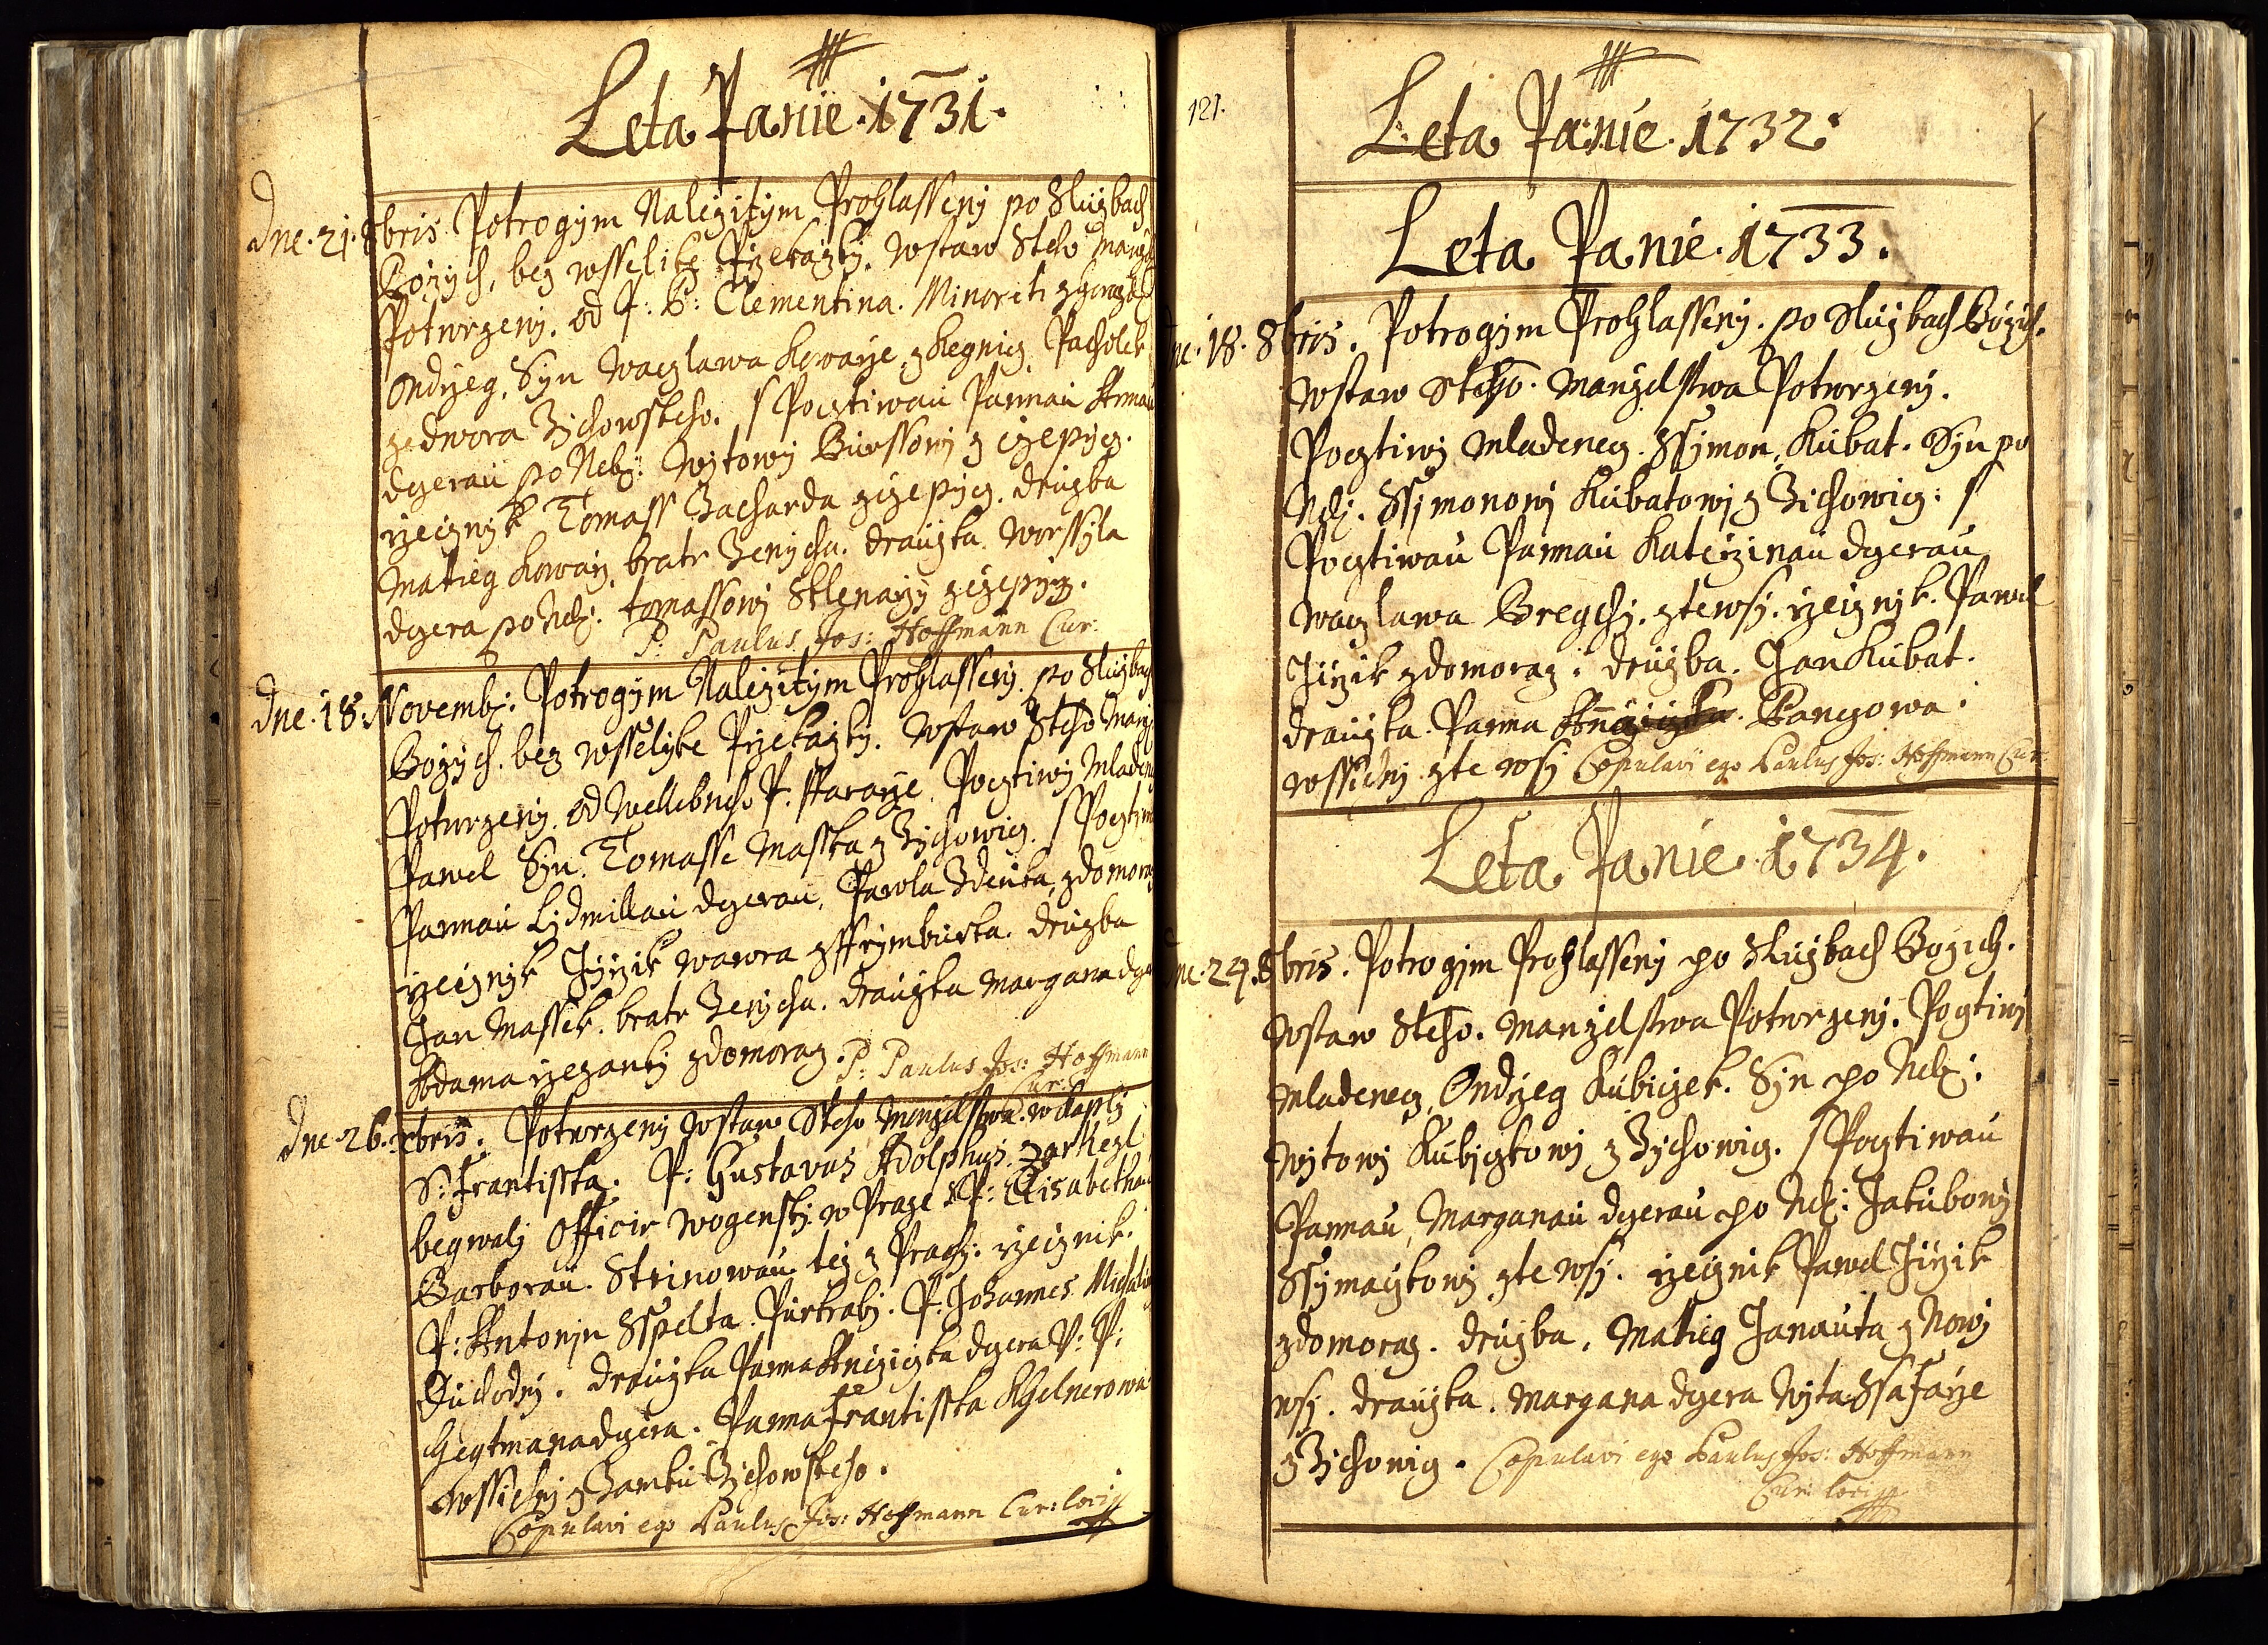 Leta Panie 1731.
dne. 21. 8bris Potrogÿm Naležitÿm Prohlassenÿ po Službach
Božÿch, bez wsselike Pržekažkÿ. wstaw Steho manž
Potwrzenÿ. od P: P: Clementina. Minoriti z horaž
Ondržeg, Syn Waczlawa Kowarže z Kegnicz Pacholek
ze dwora Žichowskeho. s Pocztiwau Pannau Annau
dczerau po Neb: Wÿtowÿ Burssowÿ z Čzepicz.
rzecznÿk Tomass Zacharda z Čzepicz. družba
Matieg Kowarž, bratr Ženÿcha. draužka. Worssÿla
dczera po Neb: tomassowÿ Sklenarži z Čzepicz.
P: Paulus Jos: Hoffmann Cur:
dne. 18. Novemb: Potrogÿm Naležitÿm Prohlassenÿ. po Službach
Božÿch. bez wsselÿke Pržekažkÿ. wstaw Steho manž
Potwrzenÿ. od Wellebneho P. Pfararže. Pocztiwÿ Mladen
Pawel Syn Tomasse Masska z Žichowicz. s Pocztiw
Pannau Lÿdmillau dczerau, Pawla Zdenka, z domoraz
rzecznÿk Girzik wawra z Ssrÿmburka. družba
Jan Massek. bratr Ženÿcha. draužka Margana dcze
Adama rzezankÿ z domoraz. P: Paulus Jos: Hoffmann
Cur:
dne 26. xbris. Potwrzenÿ wstaw Steho Manželstwa. w Kaplÿ
S: Frantisska. P: Gustavus Adolphus. Zarkezl
begwalÿ Officir Wogenskÿ w Praze s P: Elisabethau
Barborau. Strinowau. tež z Prahÿ: rzecznik.
P: Antonÿn Sspelta Purkrabÿ. P: Johannes Michal
Duchodnÿ. draužka Panna Anežižka dczera P: P:
Hegtmana dczera. Panna Frantisska Khelnerowa
wssichni z Zamku Žichowskeho.
Copulavi ego Paulus Jos: Hoffmann Cur: loci
121.
Leta Panie. 1732.
Leta Panie. 1733.
dne. 18. 8bris. Potrogÿm Prohlassenÿ. po Službach Božich.
wstaw Steho. Manželstwa Potwrzenÿ.
Pocztiwÿ Mladenecz. Ssÿmon, Kubat. Syn po
Neb: Ssÿmonowÿ Kubatowÿ z Žichowicz: s
Pocztiwau Pannau Kateržinau dczerau
Waczlawa Bregchÿ. z te wsÿ. rzecznÿk. Pawel
Jiržik z domoraz. družba. Jan Kubat.
draužka. Panna Panczowa.
wssichni z te wsÿ Copulavi ego Paulus Jos: Hoffmann Cur:
Leta Panie. 1734.
dne. 24. 8bris. Potrogÿm Prohlassenÿ po Službach Božich.
wstaw Steho. Manželstwa Potwrzenÿ. Pocztiwÿ
Mladenecz Ondržeg Kubiczek. Syn po Neb:
Wÿtowÿ Kubiczkowÿ z Žichowicz. s Pocztiwau
Pannau, Marganau dczerau po Neb: Jakubowÿ
Ssÿmaczkowÿ z te wsÿ. rzecznik Pawel Jiržik
z domoraz. družba. Matieg Janauta z Nowÿ
wsÿ. draužka. Margana dczera Wÿta Ssafarže
z Žichowicz. Copulavi ego Paulus Jos: Hoffmann
Cur: loci